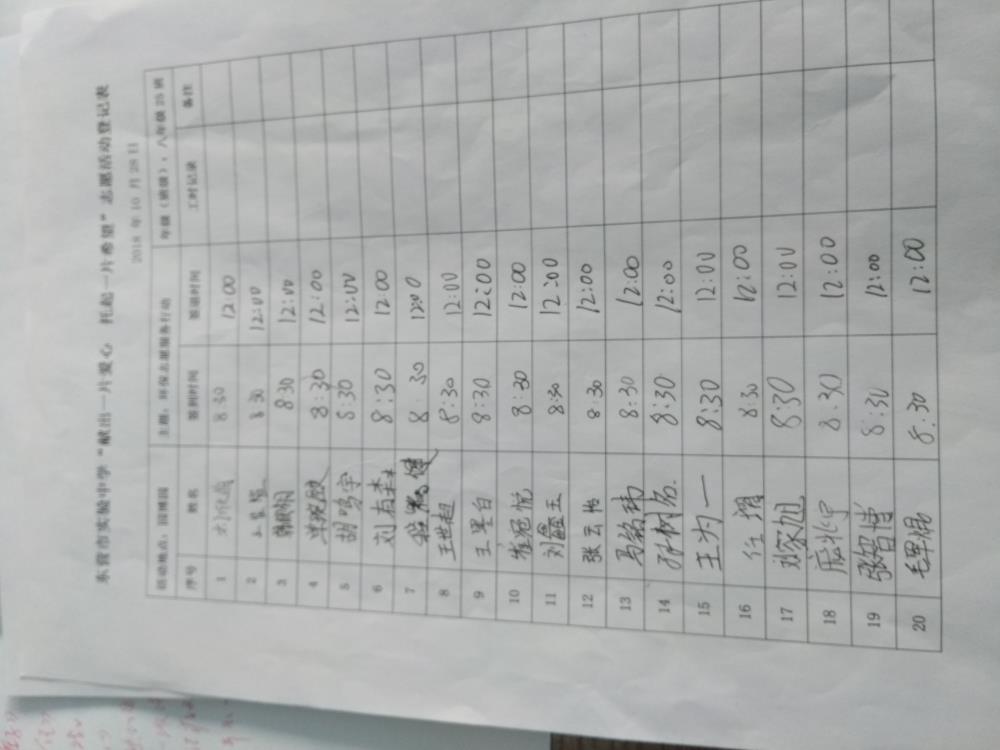 东营市实验中学“献出一片爱心 托起一片希望”志愿活动登记表
2018 年 10 月 28 日
活动地点：园博园 主题：环保志愿服务行动 年级（班级）：八年级 25 班
序号 姓名 签到时间 签退时间 工时记录 备注
1 8:30 12:00
2 8:30 12:00
3 8:30 12:00
4 8:30 12:00
5 胡鸣宇 8:30 12:00
6 刘有森 8:30 12:00
7 8:30 12:00
8 王世超 8:30 12:00
9 王黑白 8:30 12:00
10 崔冠悦 8:30 12:00
11 刘鑫玉 8:30 12:00
12 张云怡 8:30 12:00
13 马铭玮 8:30 12:00
14 孙树铭 8:30 12:00
15 王为一 8:30 12:00
16 任增 8:30 12:00
17 邓家旭 8:30 12:00
18 8:30 12:00
19 张智博 8:30 12:00
20 毛军焜 8:30 12:00